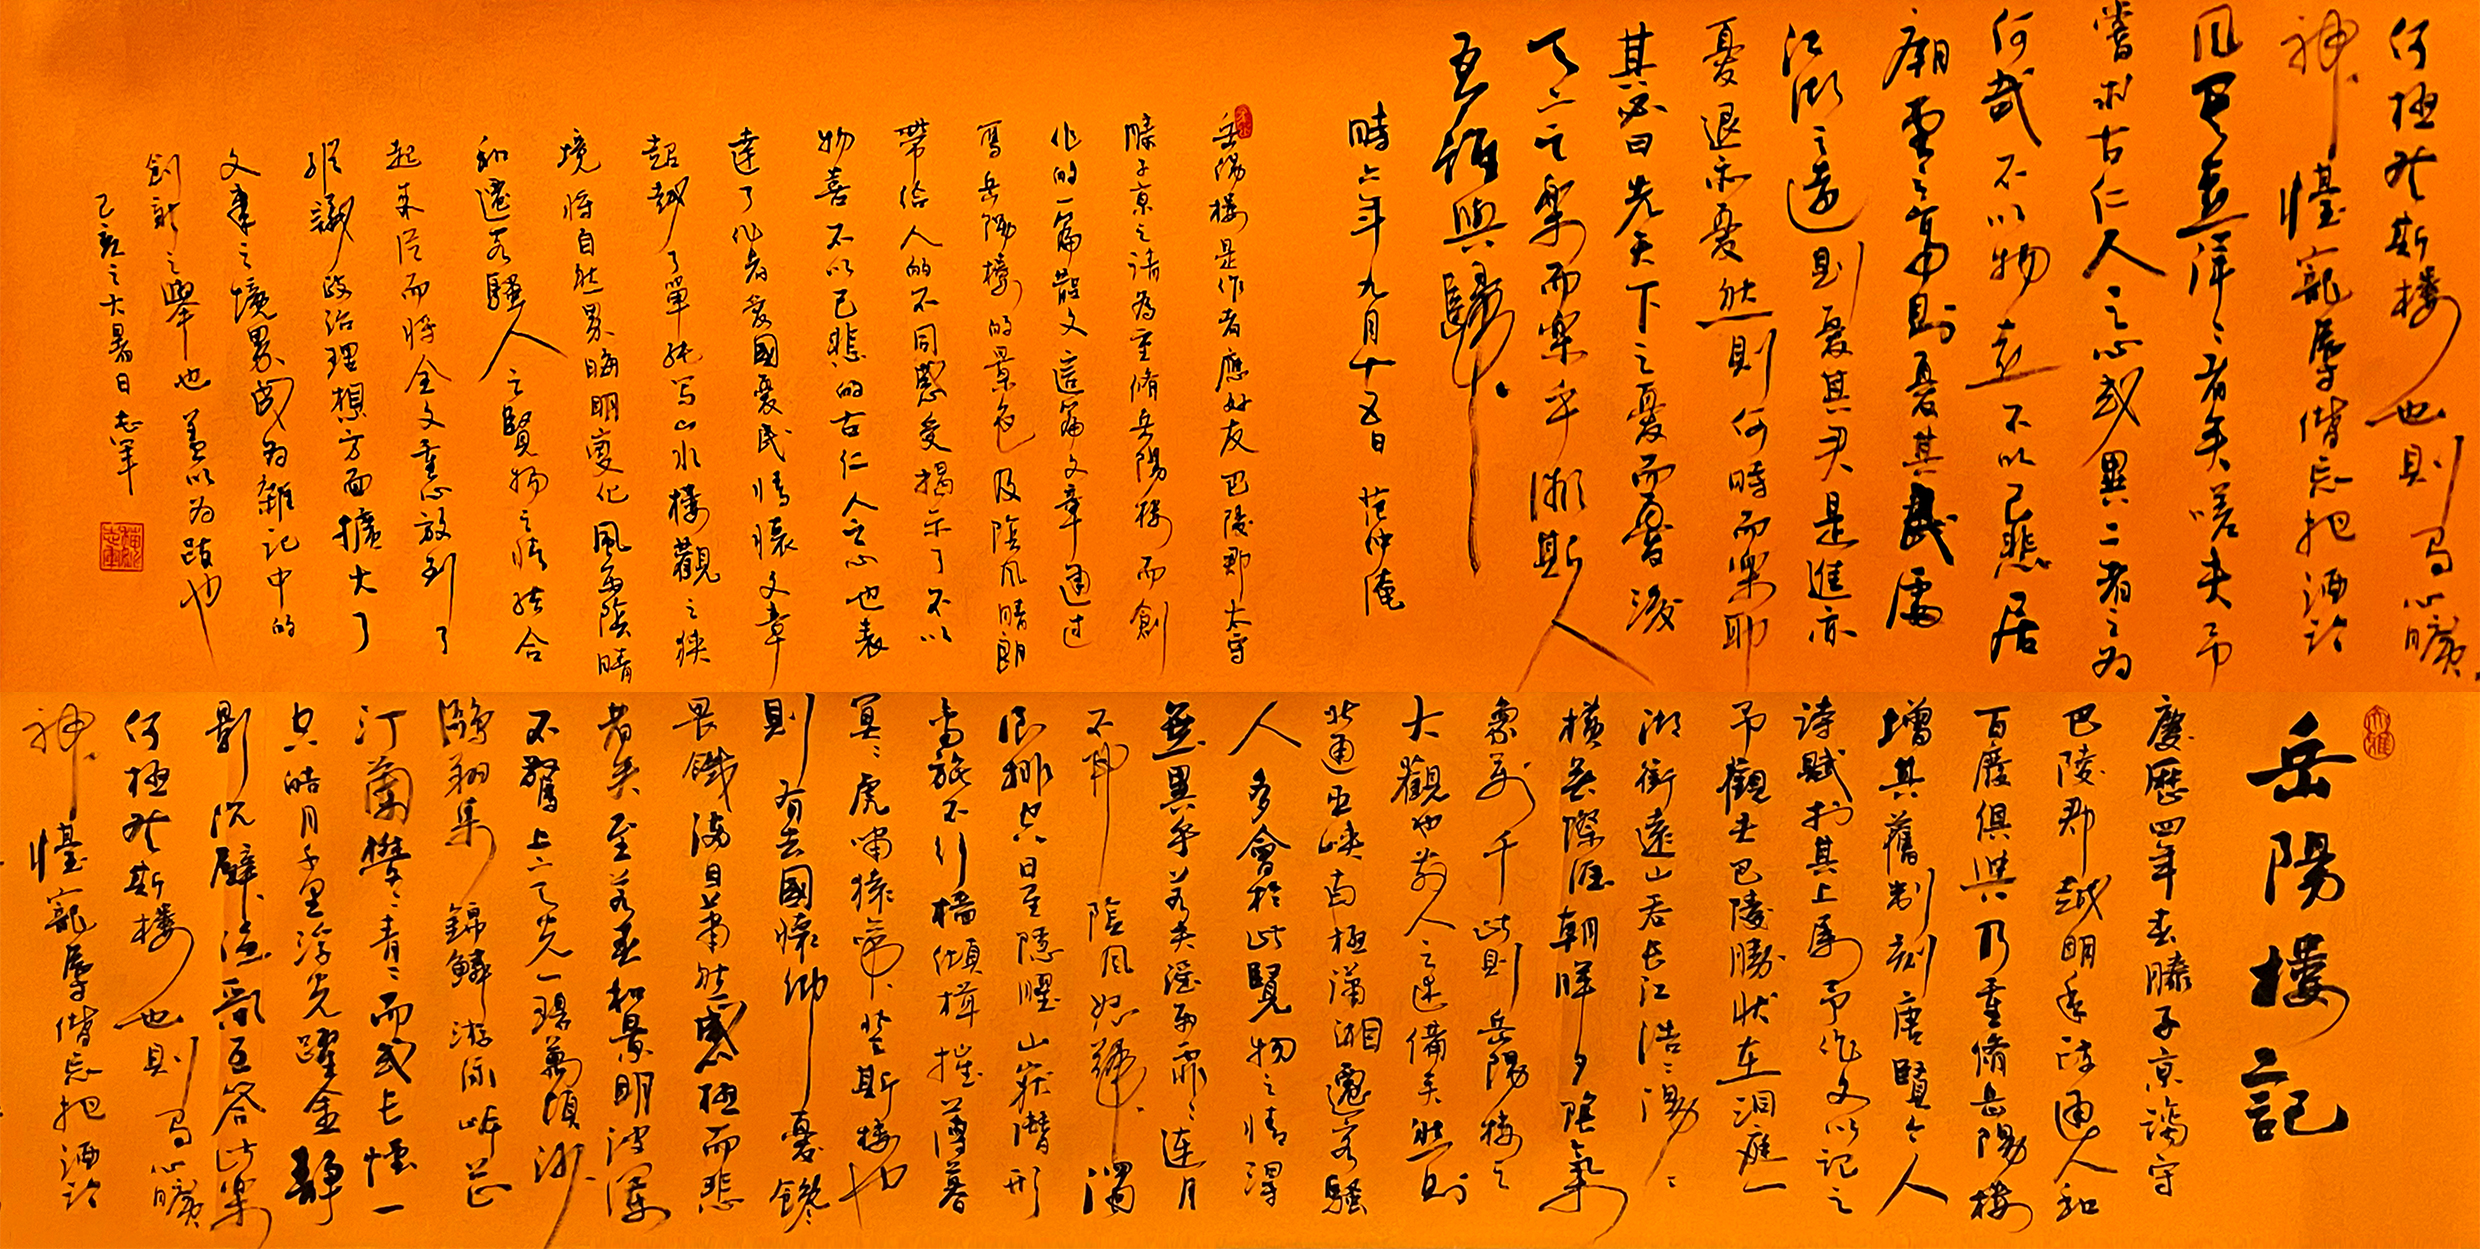 岳陽樓記
慶歷四年春滕子京謫守
巴陵郡越明年政通人和
百廢俱興乃重脩岳陽樓
增其舊制刻唐賢今人
詩賦於其上屬予作文以記之
予觀夫巴陵勝狀在洞庭一
湖銜遠山吞長江浩〻湯〻
橫無際涯朝暉夕陰氣
象萬千此則岳陽樓之
大觀也前人之述備矣然則
北通巫峽南極瀟湘遷客騷
人多會於此覽物之情得
無異乎若夫淫雨霏〻連月
不開陰風怒號濁
浪排空日星隱曜山嶽潛形
商旅不行檣傾楫摧薄暮
冥〻虎嘯猿啼登斯樓也
則有去國懷鄉憂讒
畏譏滿目蕭然感極而悲
者矣至若春和景明波瀾
不驚上下天光一碧萬頃沙
鷗翔集錦鱗游泳岸芷
汀蘭鬱〻青〻而或長煙一
空皓月千里浮光躍金靜
影沉璧漁歌互答此樂
何極登斯樓也則有心曠
神怡寵辱偕忘把酒臨
何極登斯樓也則有心曠
神怡寵辱偕忘把酒臨
風其喜洋〻者矣嗟夫予
嘗求古仁人之心或異二者之為
何哉不以物喜不以己悲居
廟堂之高則憂其民處
江湖之遠則憂其君是進亦
憂退亦憂然則何時而樂耶
其必曰先天下之憂而憂後
天下之樂而樂乎微斯人
吾誰與歸
時六年九月十五日 范仲淹
岳陽樓是作者應好友巴陵郡太守
滕子京之請為重脩岳陽樓而創
作的一篇散文這篇文章通过
寫岳陽樓的景色及陰風晴朗
帶給人的不同感受揭示了不以
物喜不以己悲的古仁人之心也表
達了作者愛國愛民情懷文章
超越了單純写山水樓觀之狹
境將自然界晦明變化風雨陰晴
和遷客騷人之覽物之情結合
起来從而將全文重心放到了
縱議政治理想方面擴大了
文章之境界成為雜記中的
創新之舉也蓋以为跋也
己亥之大暑日志軍